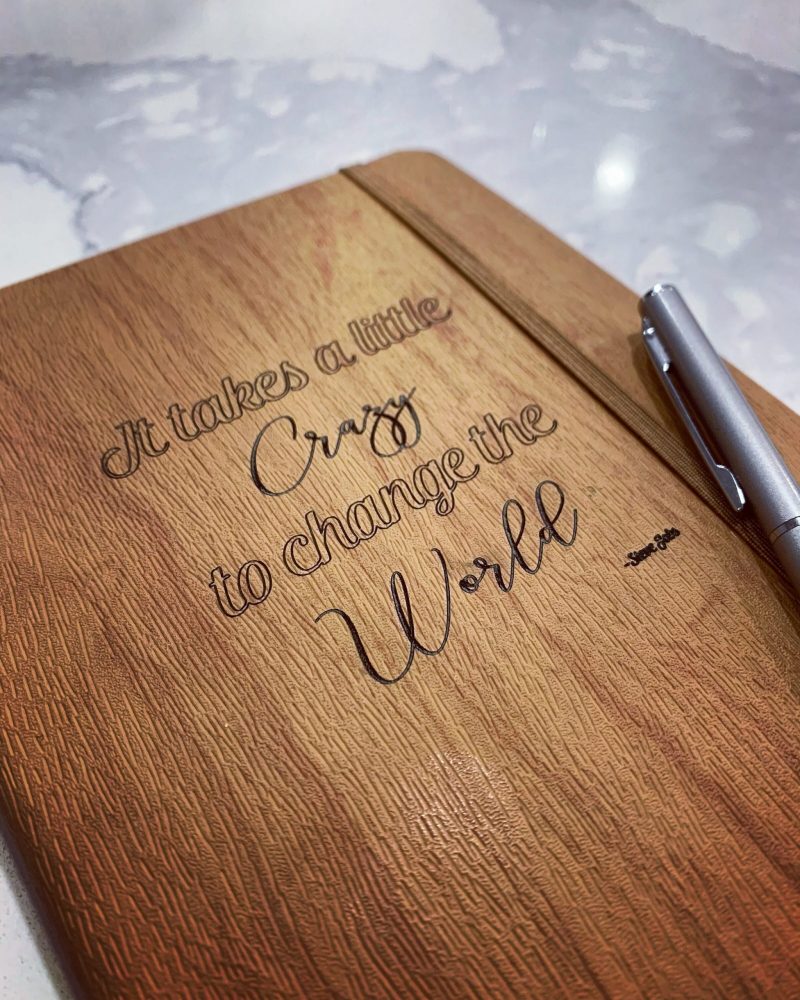 It takes a little
Crazy
to change the
World
-Steve Jobs